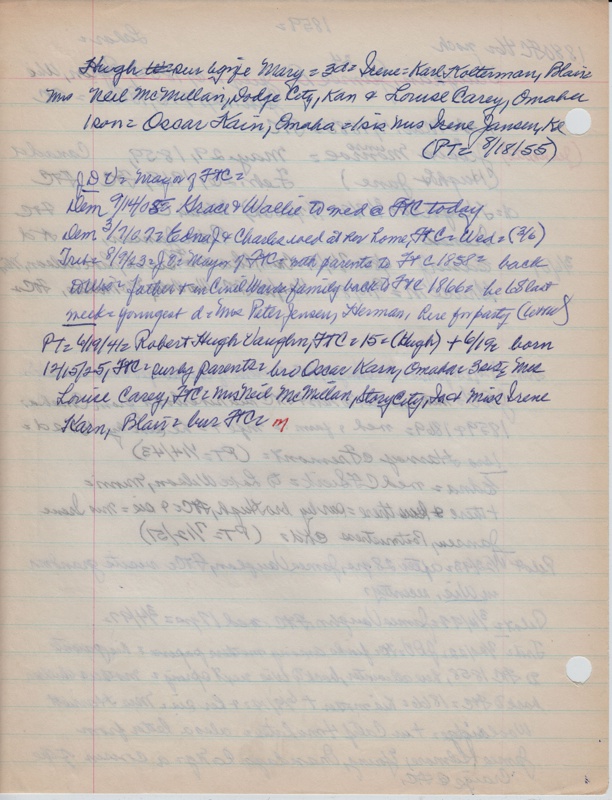 Hugh sur by life Mary = 3d = Irene = Karl Kolterman, Blair
Mrs Neil McMillan, Dodge City, Kan & Louise Carey, Omaha
1 son = Oscar Kain, Omaha = 1 sis Mrs Irene Jansen, Ke
(PT = 8/18/55)
J D V = Mayor of FtC =
Dem 9/14/05 Grace & Wallie to wed @ FtC today
Dem 3/7/07 = Edna J & Charles wed at her home, FtC = Wed = (3/6)
Trib = 8/9/23 = J = Mayor of FtC = with parents to FtC 1858 = back
to Wis = father in Civil War = family back to FtC 1866 = he 65 last
week = youngest d = Mrs Peter Jensen, Herman, here for party
PT = 6/19/41 = Robert Hugh Vaughn, FtC = 15 = (Hugh) + 6/19 = born
12/15/25, FtC = sur by parents = bro Oscar Karn, Omaha = 3 sis, Mrs
Louise Carey, FtC = Mrs Neil McMillan, Story City, Ia & Miss Irene
Karn, Blair = bur FtC = m